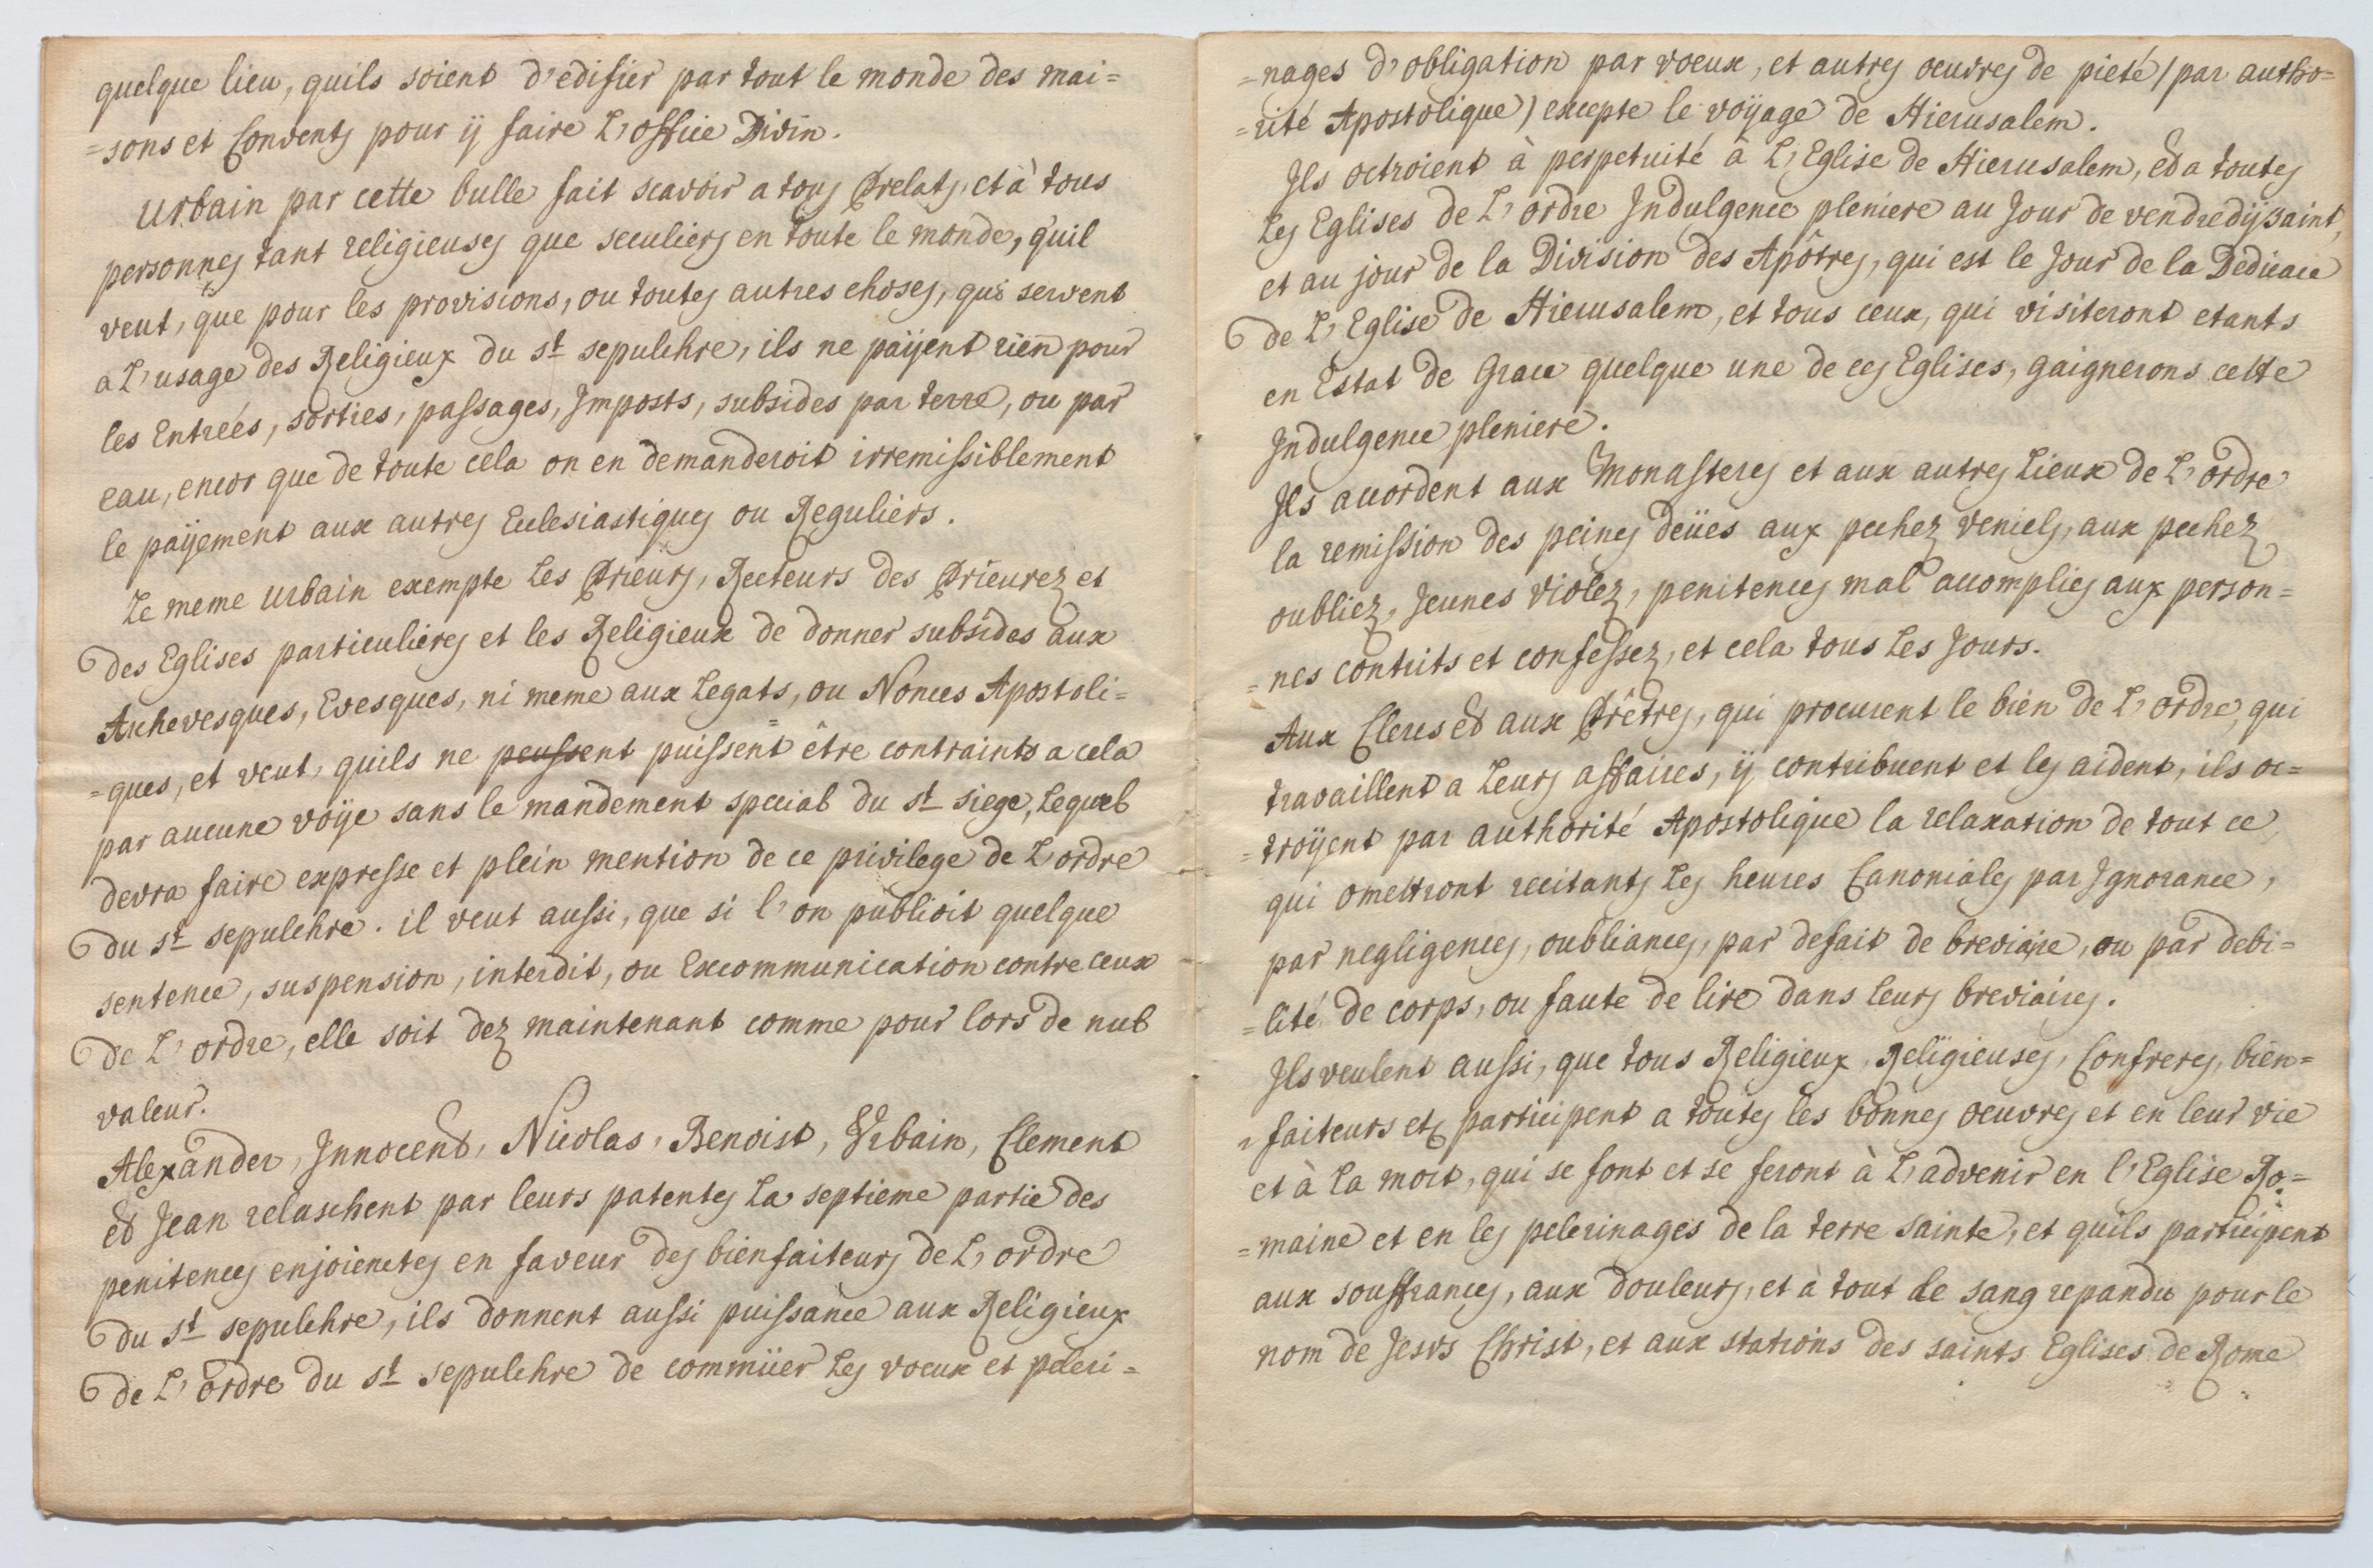 quelque lieu, quils soient d'edifier par tout le monde des mai=
=sons et Convents pour ÿ faire L'office Divin.
Urbain par cette bulle fait scavoir a tous Prelats, et à tous
personnes tant religieuses que seculiers en toute le monde, quil
veut, que pour les provisions, ou toutes autres choses, qui servent
a L'usage des Religieux du st sepulchre, ils ne paÿent rien pour
les Entreés, sorties, passages, Imposts, subsides par terre, ou par
eau, encor que de toute cela on en demanderoit irremissiblement
le paÿement aux autres Eclesiastiques ou Reguliers.
Le meme Urbain exempte Les Prieurs, Recteurs des Prieurez et
des Eglises particulieres et les Religieux de donner subsides aux
Archevesques, Evesques, ni meme aux Legats, ou Nonces Apostoli=
=ques, et veut, quils ne peussent puissent être contraints a cela
par aucune voÿe sans le mandement special du st siege, Lequel
devra faire expresse et plein mention de ce privilege de L'ordre
du st sepulchre. il veut aussi, que si l'on publioit quelque
sentence, suspension, interdit, ou Excommunication contre ceux
de L'ordre, elle soit dez maintenant comme pour lors de nul
valeur.
Alexander, Innocent, Nicolas, Benoist, Urbain, Clement
et Jean relaschent par leurs patentes La septieme partie des
penitences enjoienctes en faveur des bienfaiteurs de L'ordre
du st sepulchre, ils donnent aussi puissance aux Religieux
de L'ordre du st sepulchre de commüer Les voeux et peleri=
=nages d'obligation par voeux, et autres oeuvres de pieté (par autho=
=rité Apostolique) excepte le voÿage de Hierusalem.
Ils octroient à perpetuité à L'Eglise de Hierusalem, et a toutes
Les Eglises de L'ordre Indulgence pleniere au Jour de vendredÿ saint,
et au jour de la Division des Apôtres, qui est le Jour de la Dedicace
de L'Eglise de Hierusalem, et tous ceux, qui visiteront etants
en Estat de Grace quelque une de ces Eglises, gaignerons cette
Indulgence pleniere.
Ils acordent aux Monasteres et aux autres Lieux de L'ordre
la remission des peines deües aux pechez veniels, aux pechez
oubliez, Jeunes violez, penitences mal acomplies aux person=
=nes contrits et confessez, et cela tous Les Jours.
Aux Clercs et aux Prêtres, qui procurent le bien de L'ordre, qui
travaillent a Leurs affaires, ÿ contribuent et les aident, ils oc=
=troÿent par authorité Apostolique la relaxation de tout ce
qui omettront recitants Les heures Canoniales par Ignorance,
par negligences, oubliances, par defait de breviaire, ou par debi=
=lité de corps, ou faute de lire dans Leurs breviaires.
Ils veulent aussi, que tous Religieux, Religieuses, Confreres, bien=
=faiteurs etc participent a toutes les bonnes oeuvres et en leur vie
et à La mort, qui se font et se feront à L'advenir en l'Eglise Ro=
=maine et en les pelerinages de la terre sainte, et quils participent
aux souffrances, aux douleurs, et à tout le sang repandu pour le
nom de Jesus Christ, et aux stations des saints Eglises de Rome